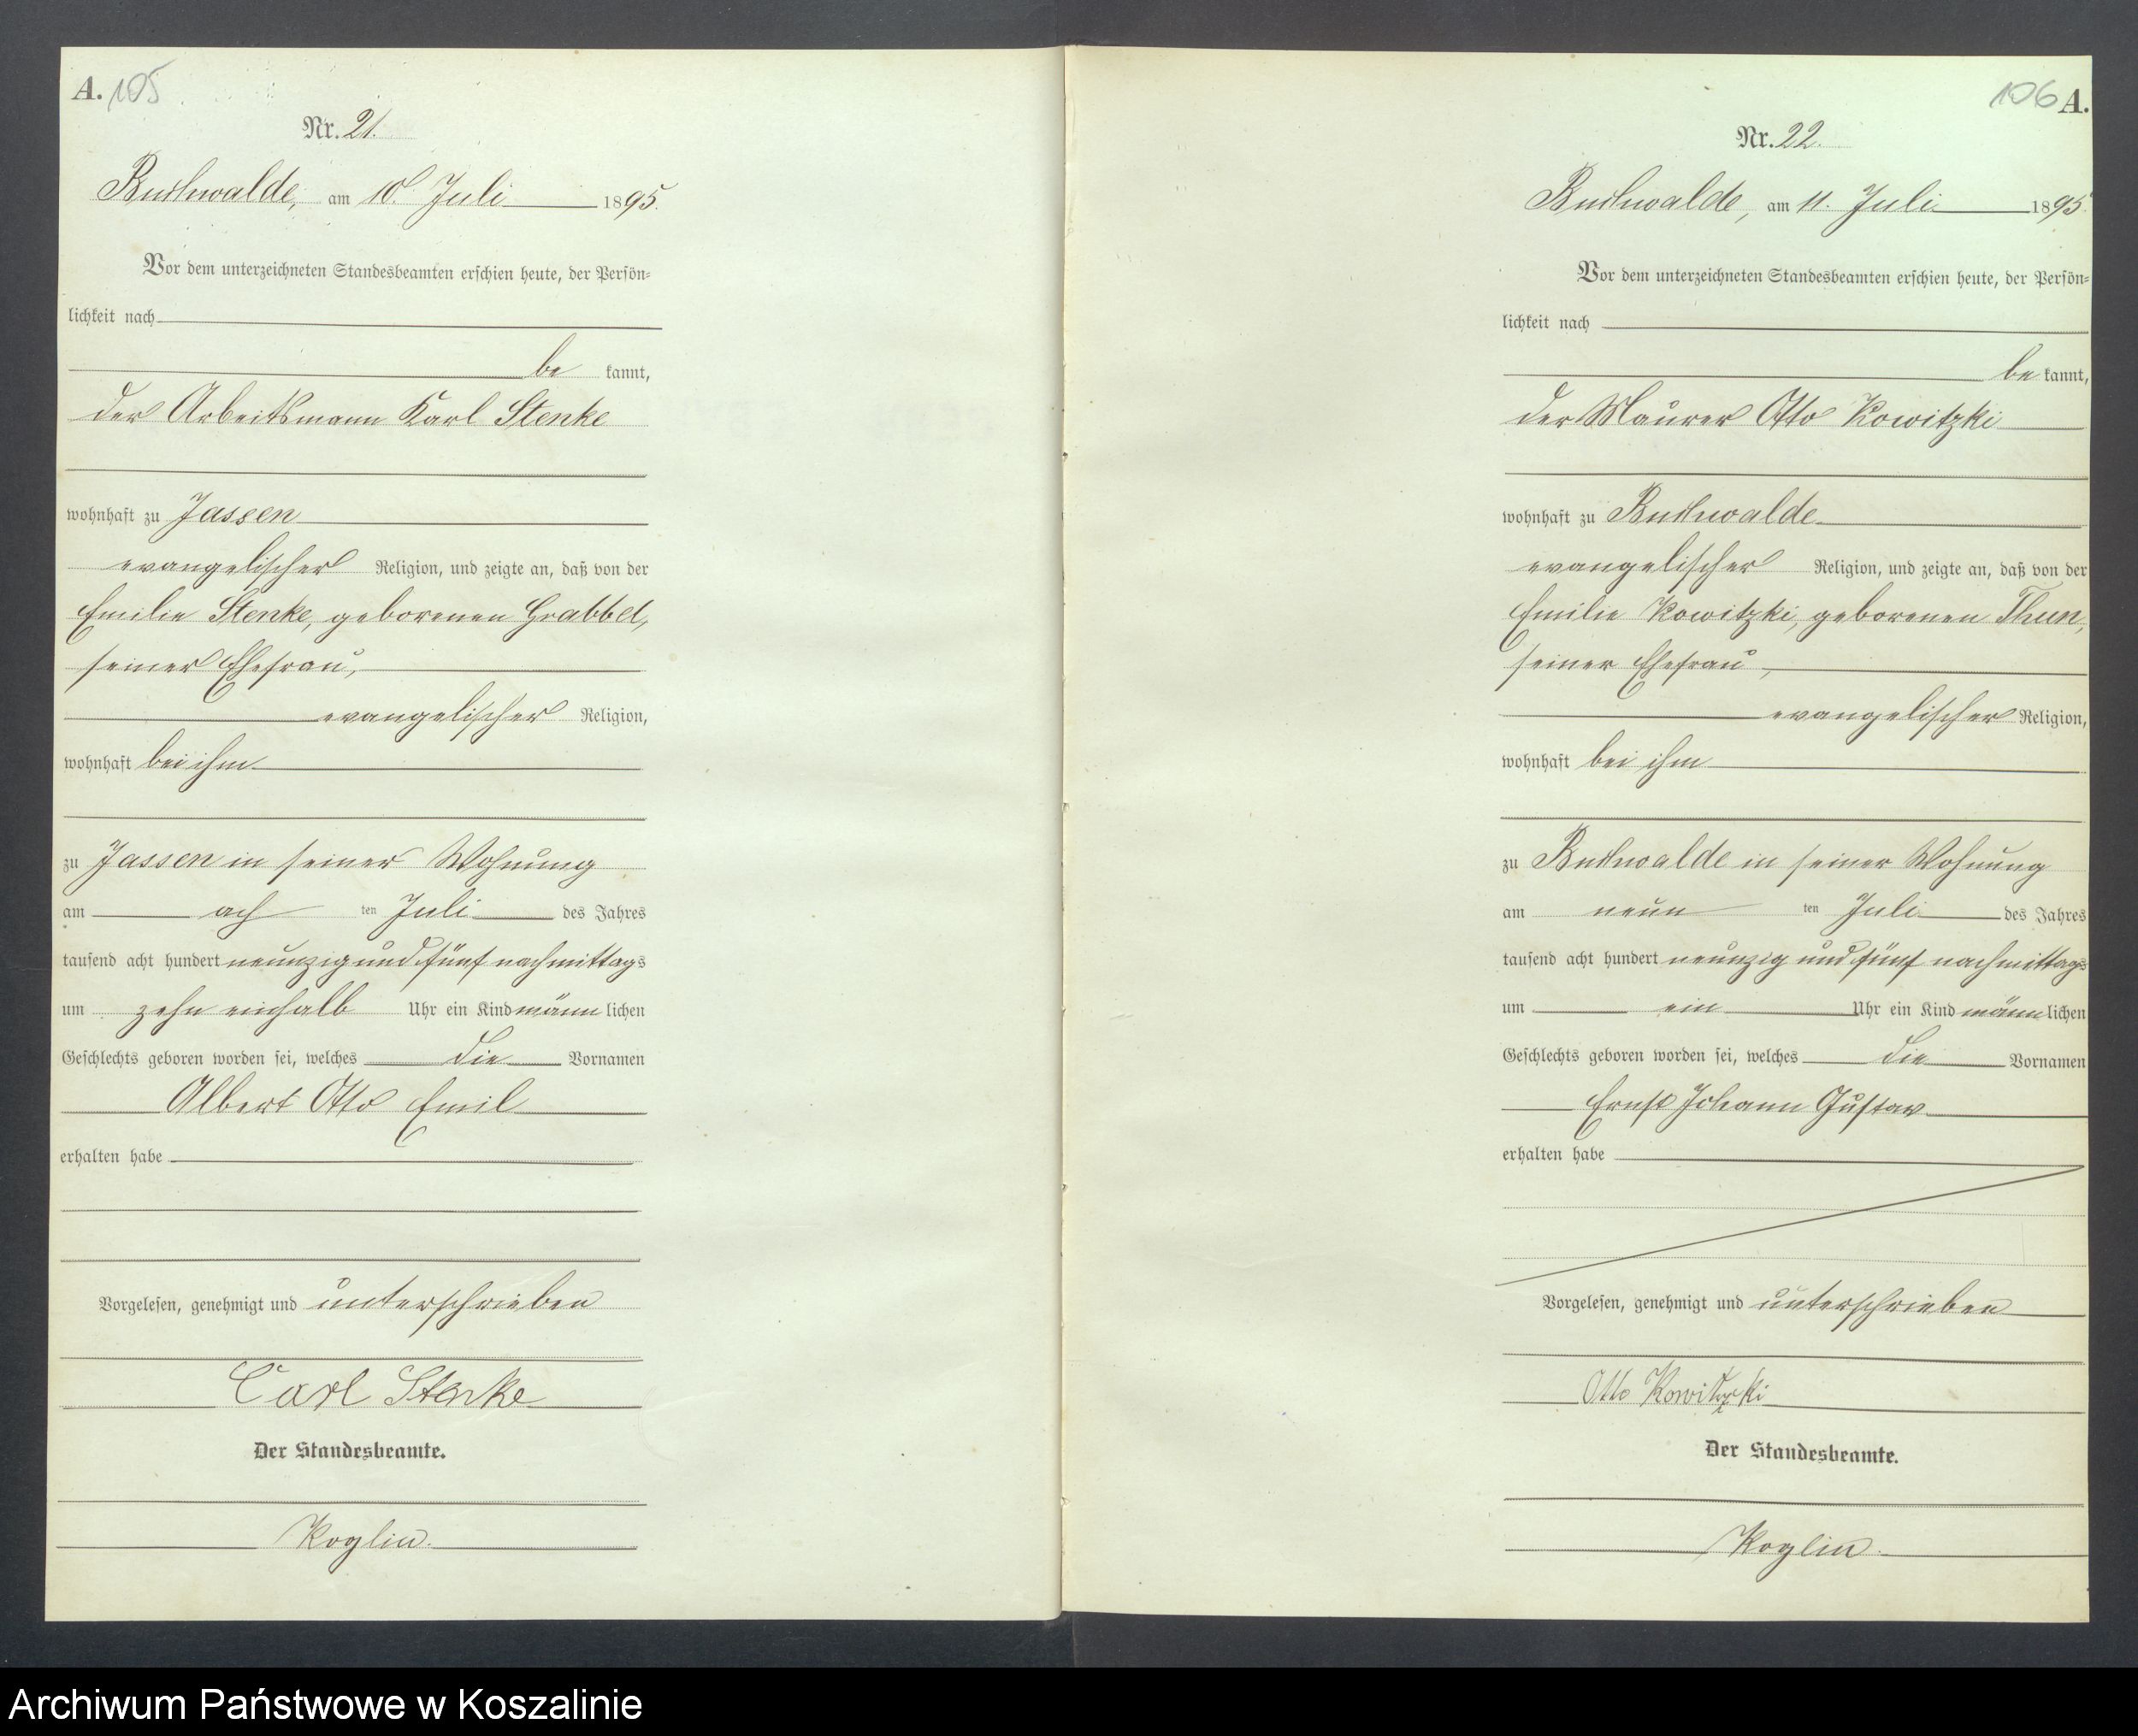 A. 105
Nr. 21.
Buchwalde, am 10. Juli 1895.
Vor dem unterzeichneten Standesbeamten erschien heute, der Persön-
lichkeit nach
be kannt,
der Arbeitsmann Karl Stenke
wohnhaft zu Jassen
evangelischer Religion, und zeigte an, daß von der
Emilie Stenke, geborenen Grabbel,
seiner Ehefrau,
evangelischer Religion,
wohnhaft bei ihm
zu Jassen in seiner Wohnung
am ach ten Juli des Jahres
tausend acht hundert neunzig und fünf nachmittags
um zehn einhalb Uhr ein Kind männ lichen
Geschlechts geboren worden sei, welches die Vornamen
Albert Otto Emil
erhalten habe
Vorgelesen, genehmigt und unterschrieben
Carl Stenke
Der Standesbeamte.
Koglin.
106 A.
Nr. 22.
Buchwalde, am 11. Juli 1895
Vor dem unterzeichneten Standesbeamten erschien heute, der Persön-
lichkeit nach
be kannt,
der Maurer Otto Kowitzki
wohnhaft zu Buchwalde
evangelischer Religion, und zeigte an, daß von der
Emilie Kowitzki, geborenen Thun,
seiner Ehefrau,
evangelischer Religion,
wohnhaft bei ihm
zu Buchwalde in seiner Wohnung
am neun ten Juli des Jahres
tausend acht hundert neunzig und fünf nachmittags
um ein Uhr ein Kind männ lichen
Geschlechts geboren worden sei, welches die Vornamen
Ernst Johann Gustav
erhalten habe
Vorgelesen, genehmigt und unterschrieben
Otto Kowitzki
Der Standesbeamte.
Koglin.
Archiwum Państwowe w Koszalinie